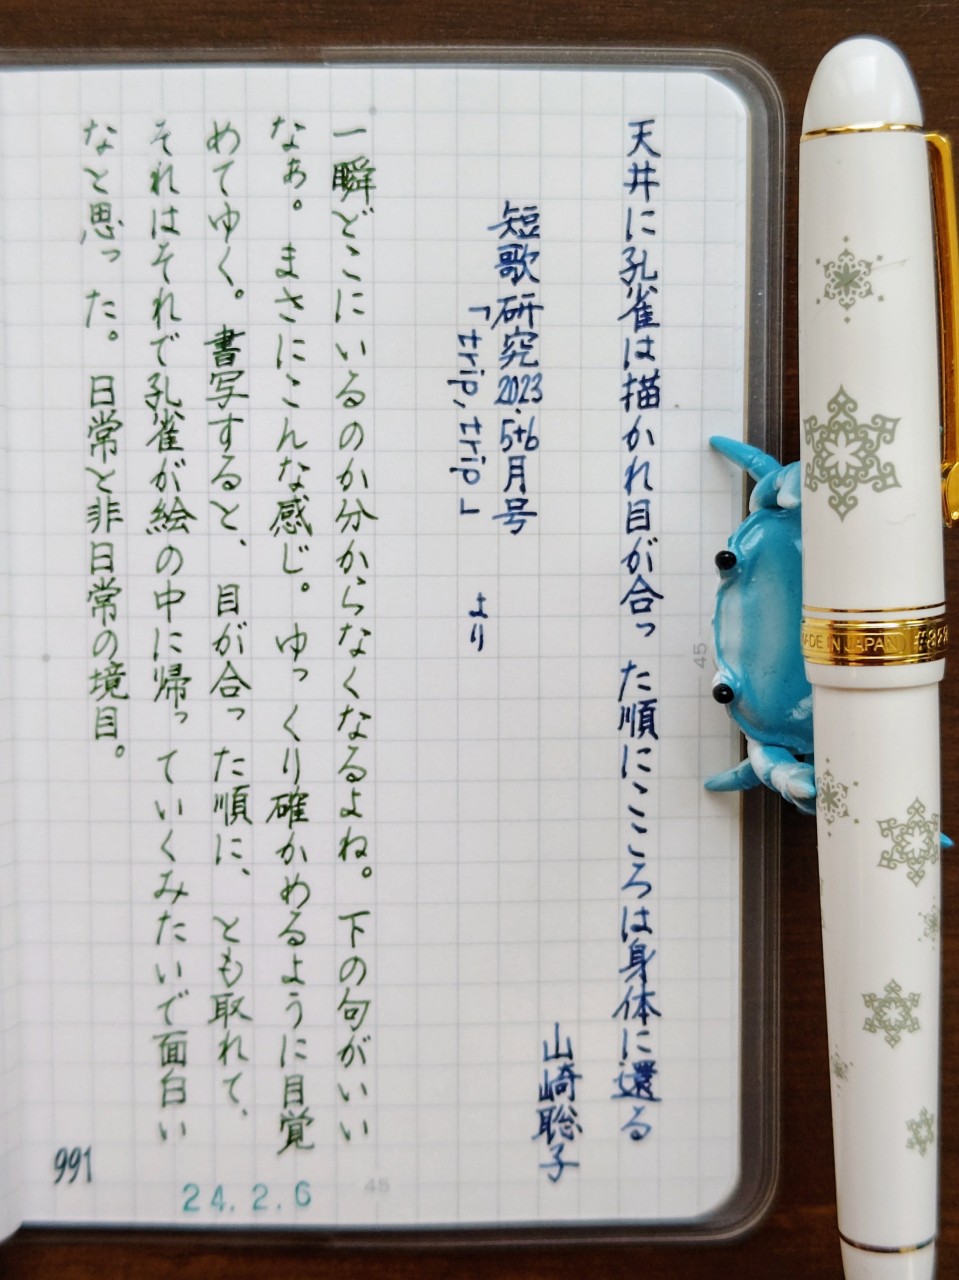 天井に孔雀は描かれ目が合った順にこころは身体に還る
山崎聡子
短歌研究2023.5+6月号
「trip, trip」より
一瞬どこにいるのか分からなくなるよね。下の句がいい
なぁ。まさにこんな感じ。ゆっくり確かめるように目覚
めてゆく。書写すると、目が合った順に、とも取れて、
それはそれで孔雀が絵の中に帰っていくみたいで面白い
なと思った。日常と非日常の境目。
991
24.2.6
45
45
MADE IN JAPAN